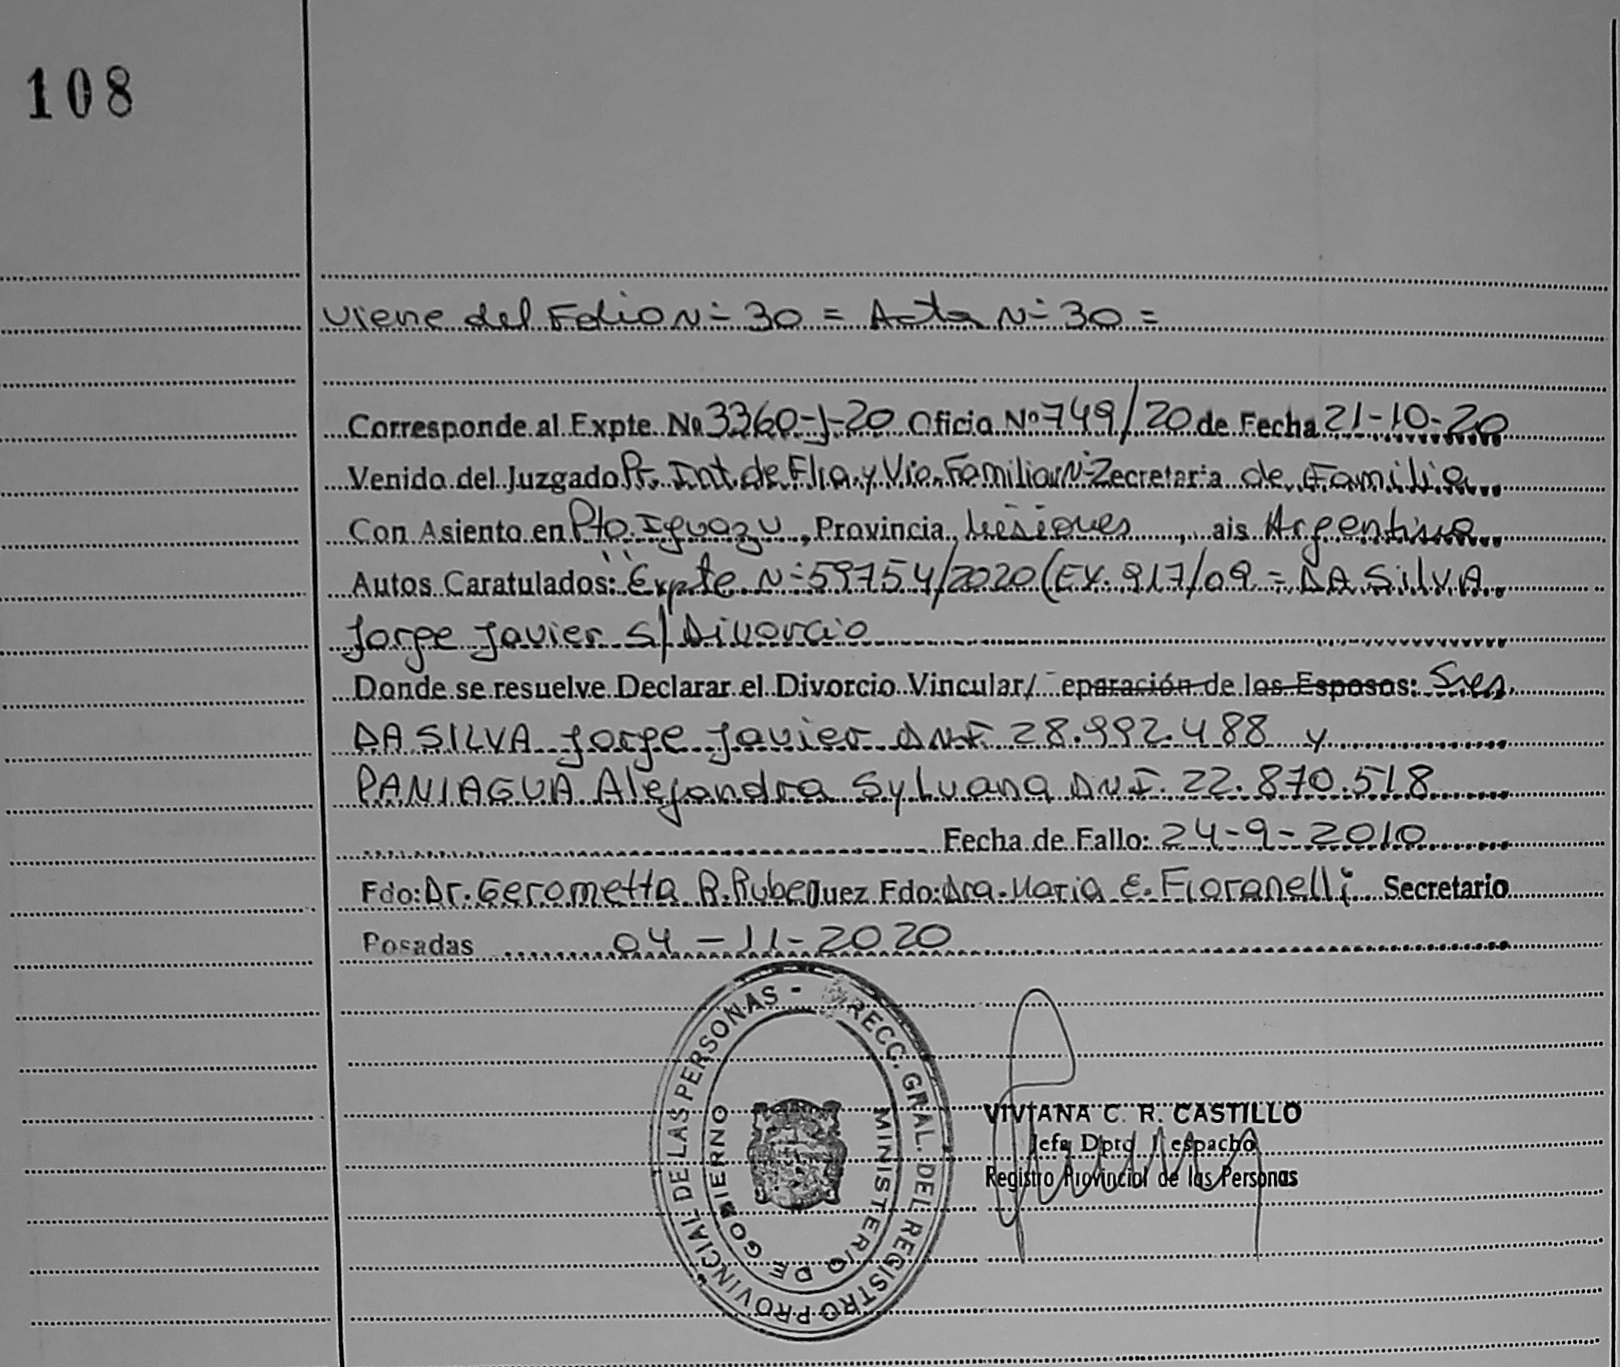 108
Viene del Folio Nº 30 = Acta Nº 30 =
Corresponde al Expte. Nº 3360-J-20 Oficio Nº 749/20 de Fecha 21-10-20
Venido del Juzgado Pr. Int. de Flia. y Vio. Familiar Nº 2 ecretaria de Familia
Con Asiento en Pto. Iguazu, Provincia, Misiones, ais Argentina
Autos Caratulados: "Expte Nº 59754/2020 (EX. 917/09 = DA SILVA
Jorge Javier s/ Divorcio
Donde se resuelve Declarar el Divorcio Vincular/ eparación de los Esposos: Sres.
DA SILVA Jorge Javier D.N.I. 28.992.488 y
PANIAGUA Alejandra Sylvana D.N.I. 22.870.518
Fecha de Fallo: 24-9-2010
Fdo: Dr. Gerometta R. Rube uez Fdo: Dra. Maria E. Fioranelli Secretario
Posadas 04-11-2020
DIRECC. GRAL. DEL REGISTRO PROVINCIAL DE LAS PERSONAS -
MINISTERIO DE GOBIERNO
VIVIANA C. R. CASTILLO
Jefa Dpto Despacho
Registro Provincial de las Personas